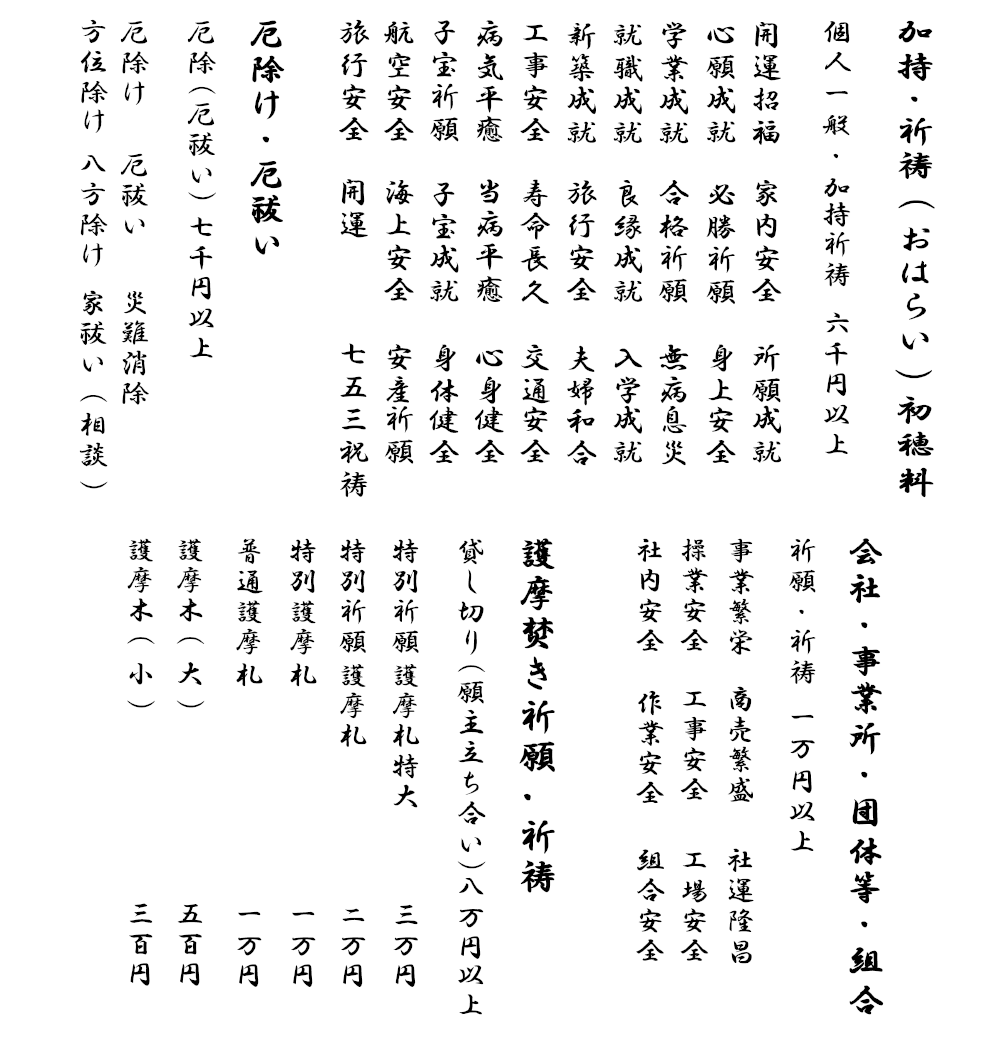 加持・祈祷(おはらい)初穂料
個人一般・加持祈祷 六千円以上
開運招福 家内安全 所願成就
心願成就 必勝祈願 身上安全
学業成就 合格祈願 無病息災
就職成就 良縁成就 入学成就
新築成就 旅行安全 夫婦和合
工事安全 寿命長久 交通安全
病気平癒 当病平癒 心身健全
子宝祈願 子宝成就 身体健全
航空安全 海上安全 安産祈願
旅行安全 開運 七五三祝祷
厄除け・厄祓い
厄除(厄祓い)七千円以上
厄除け 厄祓い 災難消除
方位除け 八方除け 家祓い(相談)
会社・事業所・団体等・組合
祈願・祈祷 一万円以上
事業繁栄 商売繁盛 社運隆昌
操業安全 工事安全 工場安全
社内安全 作業安全 組合安全
護摩焚き祈願・祈祷
貸し切り(願主立ち合い)八万円以上
特別祈願護摩札特大 三万円
特別祈願護摩札 二万円
特別護摩札 一万円
普通護摩札 一万円
護摩木(大) 五百円
護摩木(小) 三百円